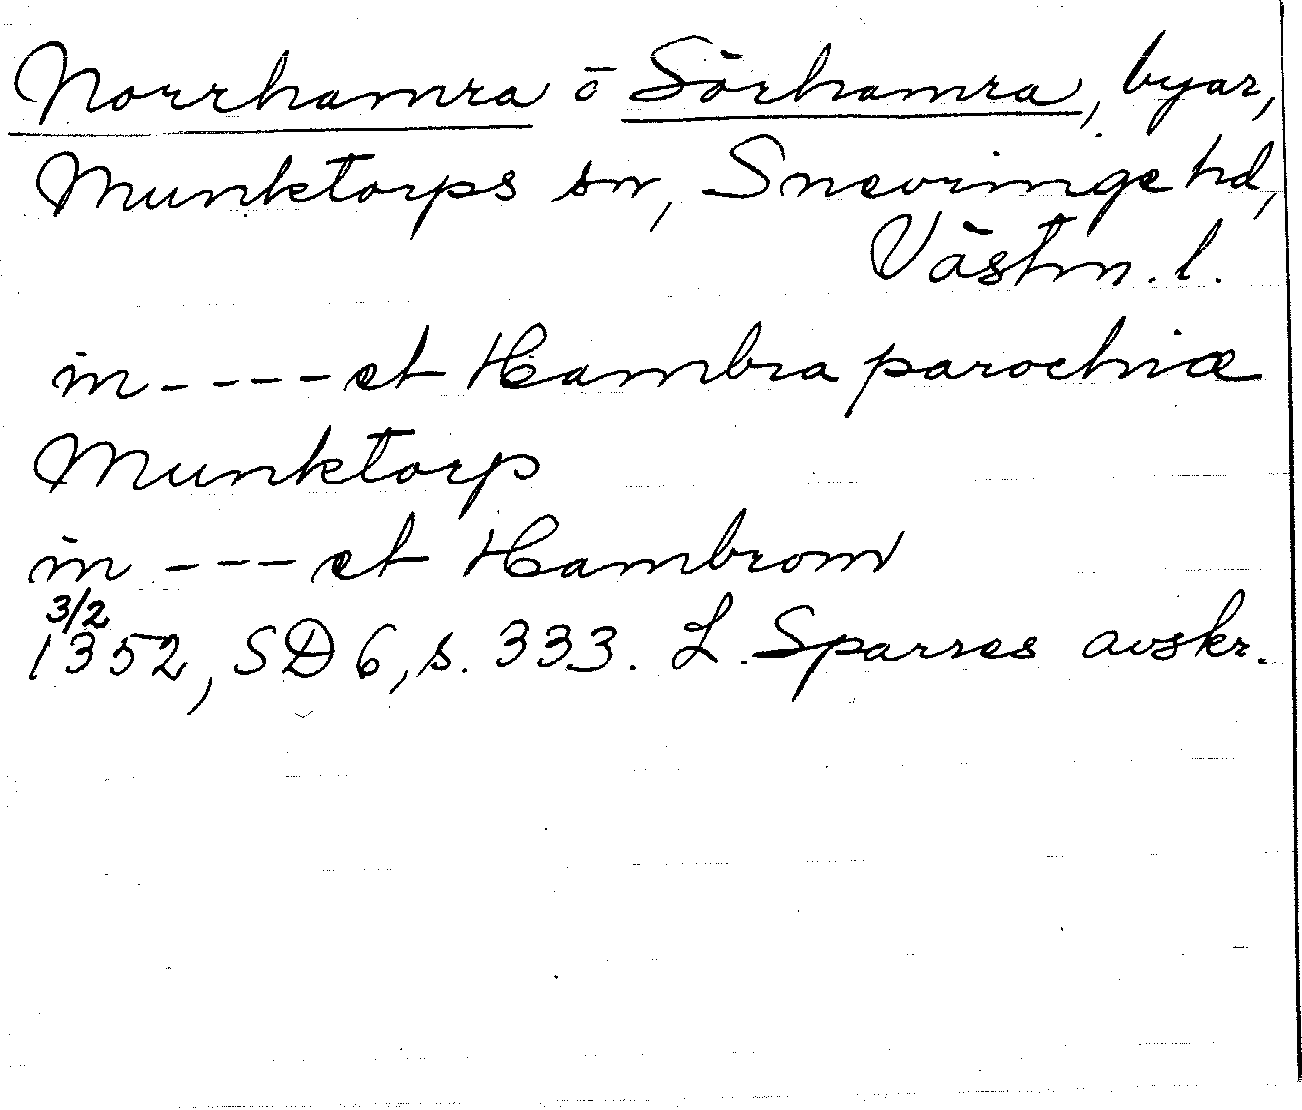 Norrhamra o Sörhamra, byar,
Munktorps sn, Snevringe hd,
Västm. l.
in - - - - et Hambra parochiæ
Munktorp
in - - - et Hambrom
3/2
1352, SD 6, s. 333. L. Sparres avskr.